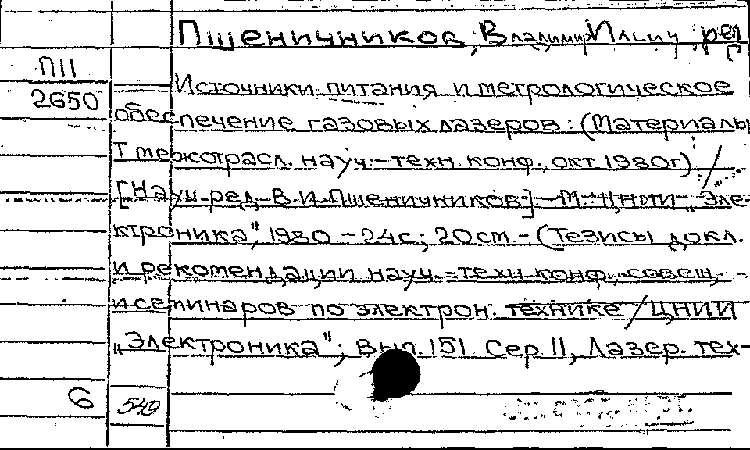 Пшеничников, Владимир Ильич, ред
П11
2650
Источники питания и метрологическое
обеспечение газовых лазеров: (Материалы
I межотрасл. науч.-техн. конф., окт 1980г) /
[Науч. ред. В. И. Пшеничников] - М. ЦНИИ „Эле-
ктроника", 1980 - 24с; 20см. - (Тезисы докл.
и рекомендации науч.-техн конф., совещ.
и семинаров по электрон. технике / ЦНИИ
„Электроника"; Вып. 151 Сер. 11, Лазер. тех-
6 549